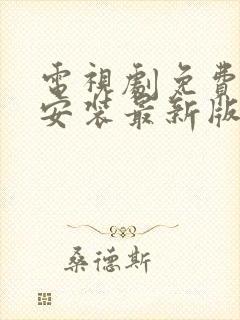 電視劇免費
安裝最新版
桑德斯